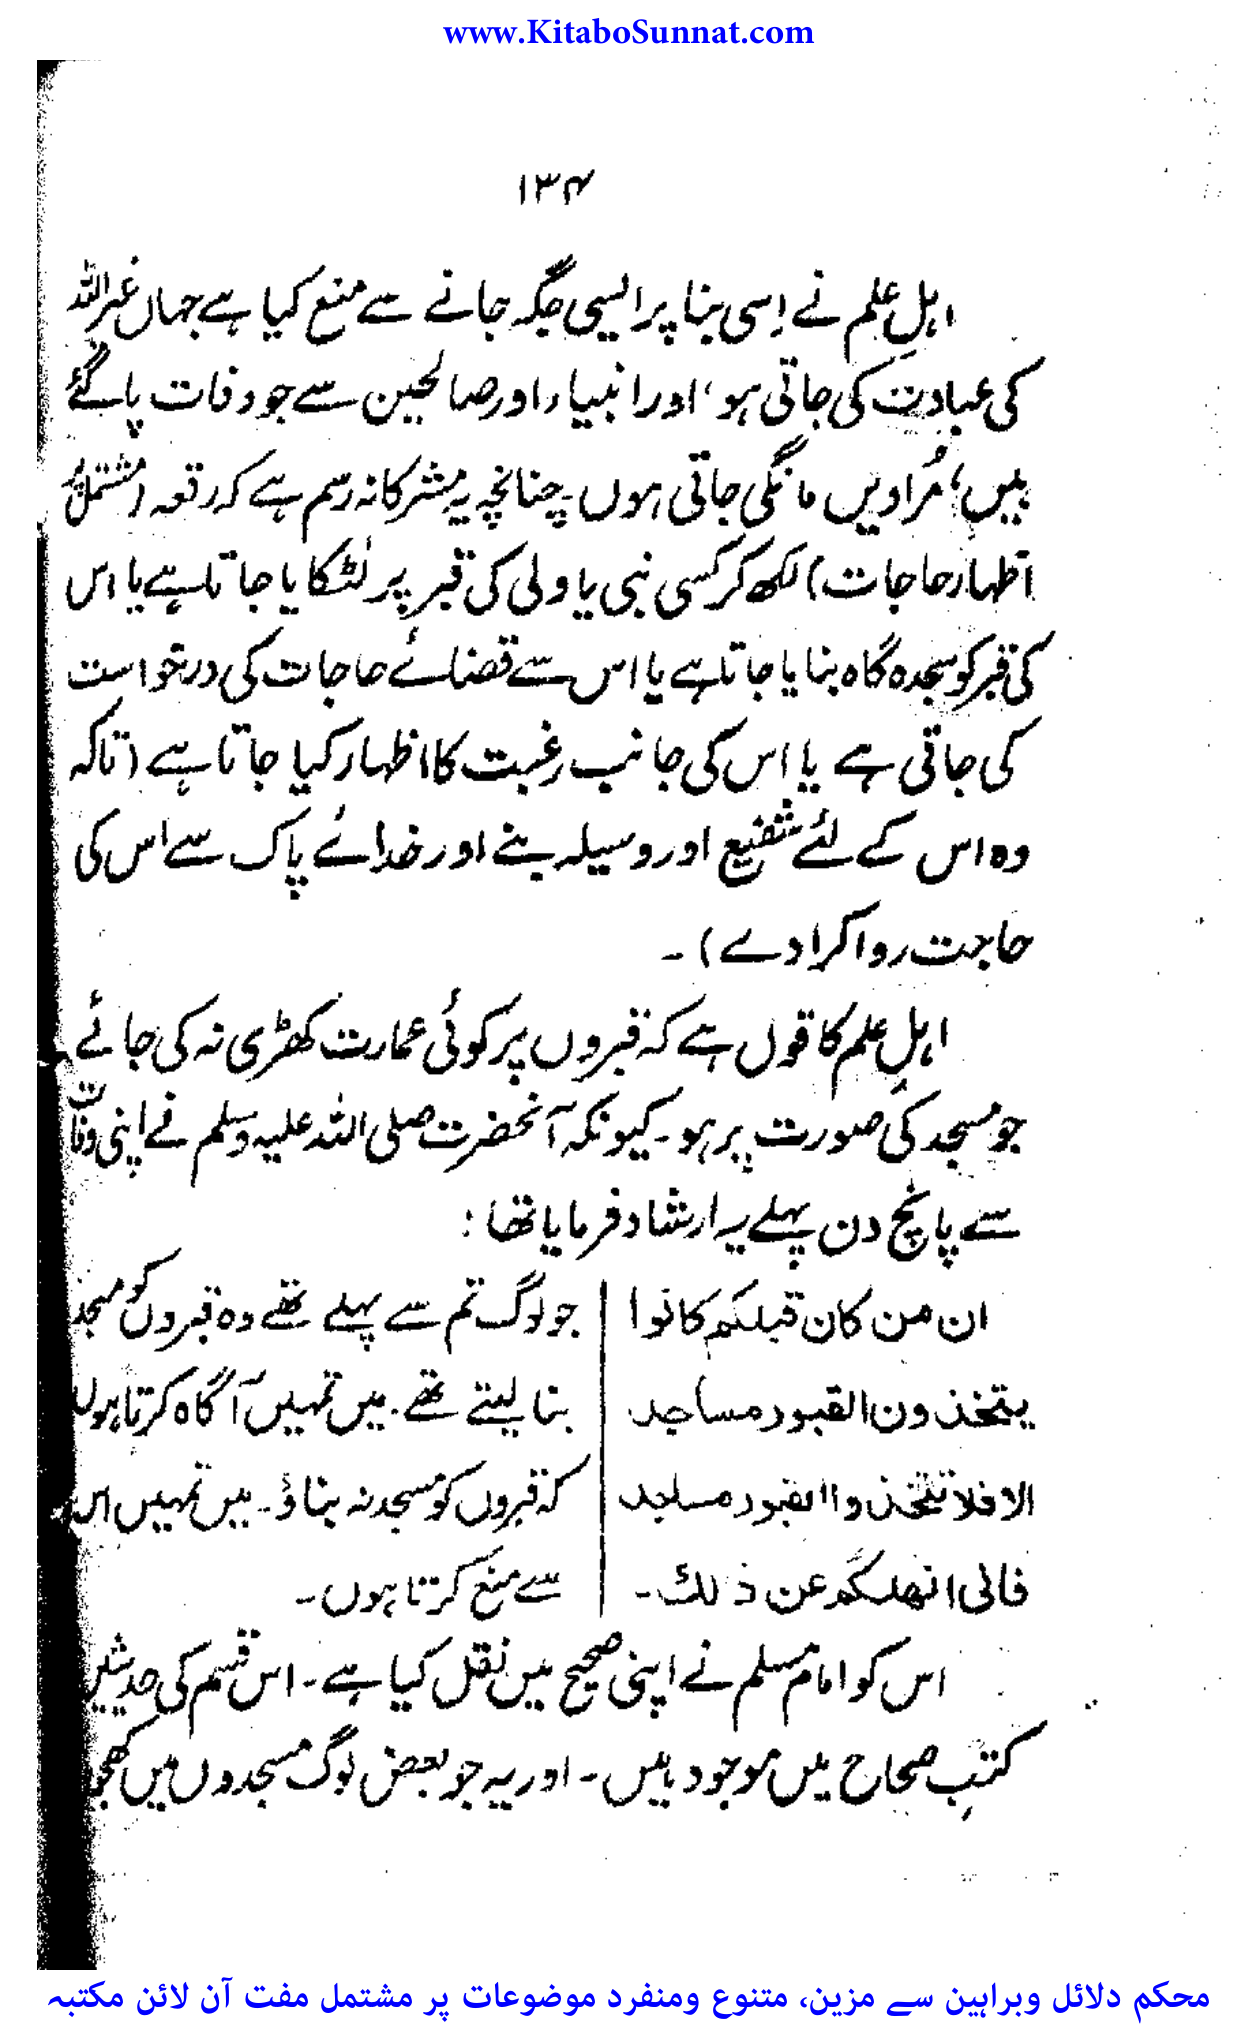 www.KitaboSunnat.com
۱۳۴
اہلِ علم نے اِسی بنا پر ایسی جگہ جانے سے منع کیا ہے جہاں غیر اللہ
کی عبادت کی جاتی ہو، اور انبیاء اور صالحین سے جو وفات پا گئے
ہیں، مُرادیں مانگی جاتی ہوں۔ چنانچہ یہ مشرکانہ رسم ہے کہ رقعہ (مشتمل بر
اظہار حاجات) لکھ کر کسی نبی یا ولی کی قبر پر لٹکایا جاتا ہے یا اس
کی قبر کو سجدہ گاہ بنایا جاتا ہے یا اس سے قضائے حاجات کی درخواست
کی جاتی ہے یا اس کی جانب رغبت کا اظہار کیا جاتا ہے (تاکہ
وہ اس کے لئے شفیع اور وسیلہ بنے اور خدائے پاک سے اس کی
حاجت روا کرا دے)۔
اہلِ علم کا قول ہے کہ قبروں پر کوئی عمارت کھڑی نہ کی جائے
جو مسجد کی صورت پر ہو۔ کیونکہ آنحضرت صلی اللہ علیہ وسلم نے اپنی وفات
سے پانچ دن پہلے یہ ارشاد فرمایا تھا:
ان من کان قبلکم کانوا | جو لوگ تم سے پہلے تھے وہ قبروں کو مسجد
یتخذون القبور مساجد | بنا لیتے تھے۔ میں تمہیں آگاہ کرتا ہوں
الا فلا تتخذوا القبور مساجد | کہ قبروں کو مسجد نہ بناؤ۔ میں تمہیں اس
فانی انھاکم عن ذلک۔ | سے منع کرتا ہوں۔
اس کو امام مسلم نے اپنی صحیح میں نقل کیا ہے۔ اس قسم کی حدیثیں
کتبِ صحاح میں موجود ہیں۔ اور یہ جو بعض لوگ مسجدوں میں کھجو
محکم دلائل وبراہین سے مزین، متنوع ومنفرد موضوعات پر مشتمل مفت آن لائن مکتبہ